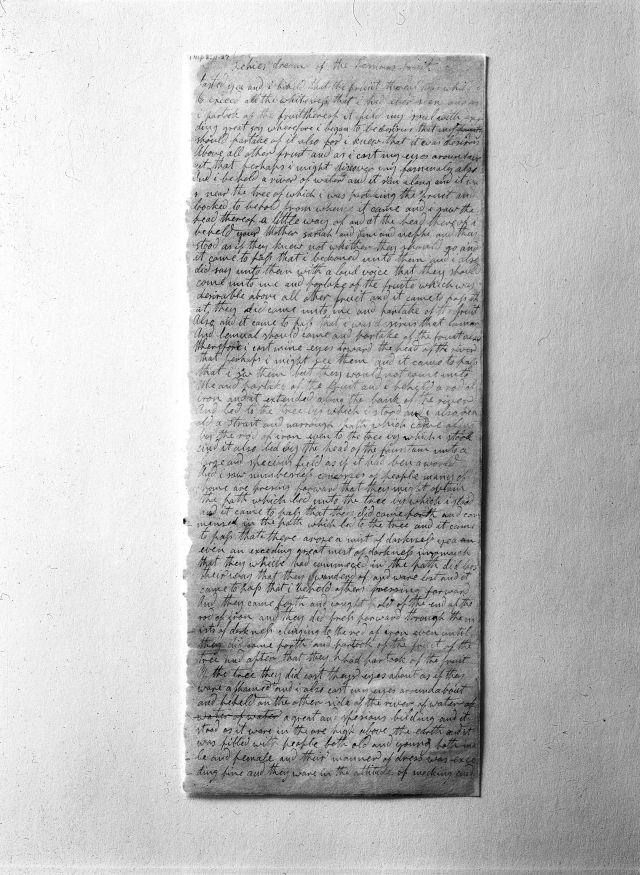 Lehies dream of the
tasted yea and i beheld that the fruit thereof was white
to exceed all the whiteness that i had ever seen and as
i partook of the fruit thereof it filed my soul with excee
ding great joy wherefore i began to be desirus that my family
should partake of it also for i knew that it was desirous
above all other fruit and as i cast my eyes around about
that perhaps i might discover my famaly also
and i beheld a river of water and it ran along and it was
near the tree of which i was partaking the fruit and
looked to behold from whence it came and i saw the
head thereof a little way of and at the head thereof i
beheld your Mother sariah and sam and nephi and tha
stood as if they knew not whether they should go and
it came to pass that i beckoned unto them and i also
did say unto them with a loud voice that they should
come unto me and partake of the fruite which was
desirable above all other fruit and it came to pass
th at, they did come unto me and partake of the fruit
Also and it came to pass that i was desirus that laman
And lemuel should come and partake of the fruit also
therefore i cast mine eyes toward the head of the river
that perhaps i might see them and it came to pass
that i saw them but they would not come unto
Me and partake of the fruit and i beheld a rod of
iron and it extended along the bank of the river
And led to the tree by which i stood and i also beh
old a strait and narrough path which came along
by the rod of iron even to the tree by which i stood
and it also led by the head of the fountain unto a
large and specious field as if it had ben a world
and i saw numberless concorses of people many of
whome are presing forward that they might obtain
the path which led unto the tree by which i stood
and it came to pass that they did come forth and com
mensed in the path which led to the tree and it came
to pass that there arose a mist of darkness yea
even an exceding great mist of darkness insomuch
that they who had commenced in the path did loos
their way that they wandered of and ware lost and it
came to pass that i beheld others pressing forward
And they came forth and caught hold of the end of the
rod of iron and they did press forward through the m
ists of darkness clinging to the rod of iron even until
they did come forth and partook of the fruit of the
tree and after that they had partook of the fruit
of the tree they did cast theyr eyes about as if they
were ashamed and i also cast my eyes aroundabout
and beheld on the other side of the river of water
water of water a great and spasious bilding and it
stood as it ware in the are high above the earth and it
was filled with people both old and young both ma
le and female and their manner of dress was exce
ding fine and they ware in the attitude of mocking and